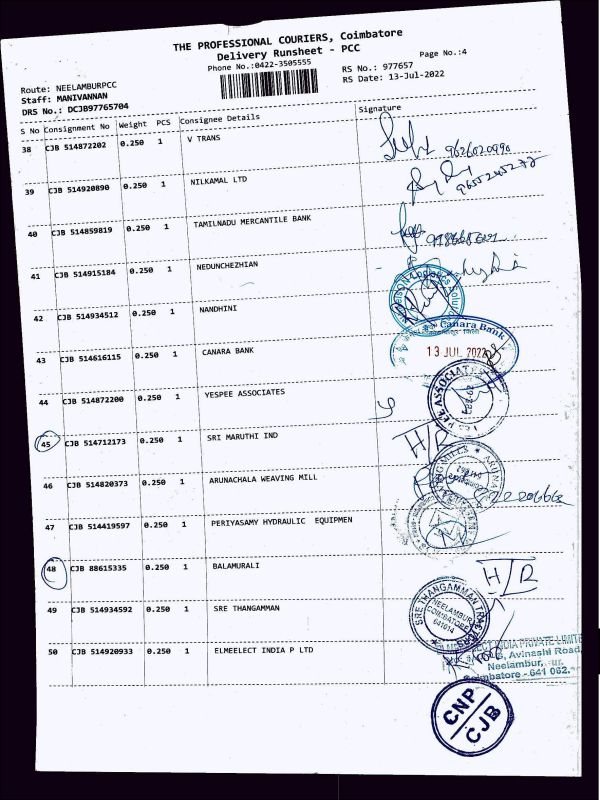 THE PROFESSIONAL COURIERS, Coimbatore
Delivery Runsheet - PCC
Phone No.:0422-3505555
Page No.:4
Route: NEELAMBURPCC
Staff: MANIVANNAN
DRS No.: DCJB97765704
RS No.: 977657
RS Date: 13-Jul-2022
S No Consignment No Weight PCS Consignee Details Signature
38 CJB 514872202 0.250 1 V TRANS
39 CJB 514920890 0.250 1 NILKAMAL LTD
40 CJB 514859819 0.250 1 TAMILNADU MERCANTILE BANK
41 CJB 514915184 0.250 1 NEDUNCHEZHIAN
42 CJB 514934512 0.250 1 NANDHINI
43 CJB 514616115 0.250 1 CANARA BANK
Canara Bank
13 JUL 2022
44 CJB 514872200 0.250 1 YESPEE ASSOCIATES
45 CJB 514712173 0.250 1 SRI MARUTHI IND
H/R
46 CJB 514820373 0.250 1 ARUNACHALA WEAVING MILL
47 CJB 514419597 0.250 1 PERIYASAMY HYDRAULIC EQUIPMEN
48 CJB 88615335 0.250 1 BALAMURALI
H/R
49 CJB 514934592 0.250 1 SRE THANGAMMAN
SRE THANGAMMAN
NEELAMBUR
COIMBATORE
641014
50 CJB 514920933 0.250 1 ELMEELECT INDIA P LTD
INDIA PRIVATE LIMITE
Avinashi Road,
Neelambur,
Coimbatore - 641 062.
CNP
CJB